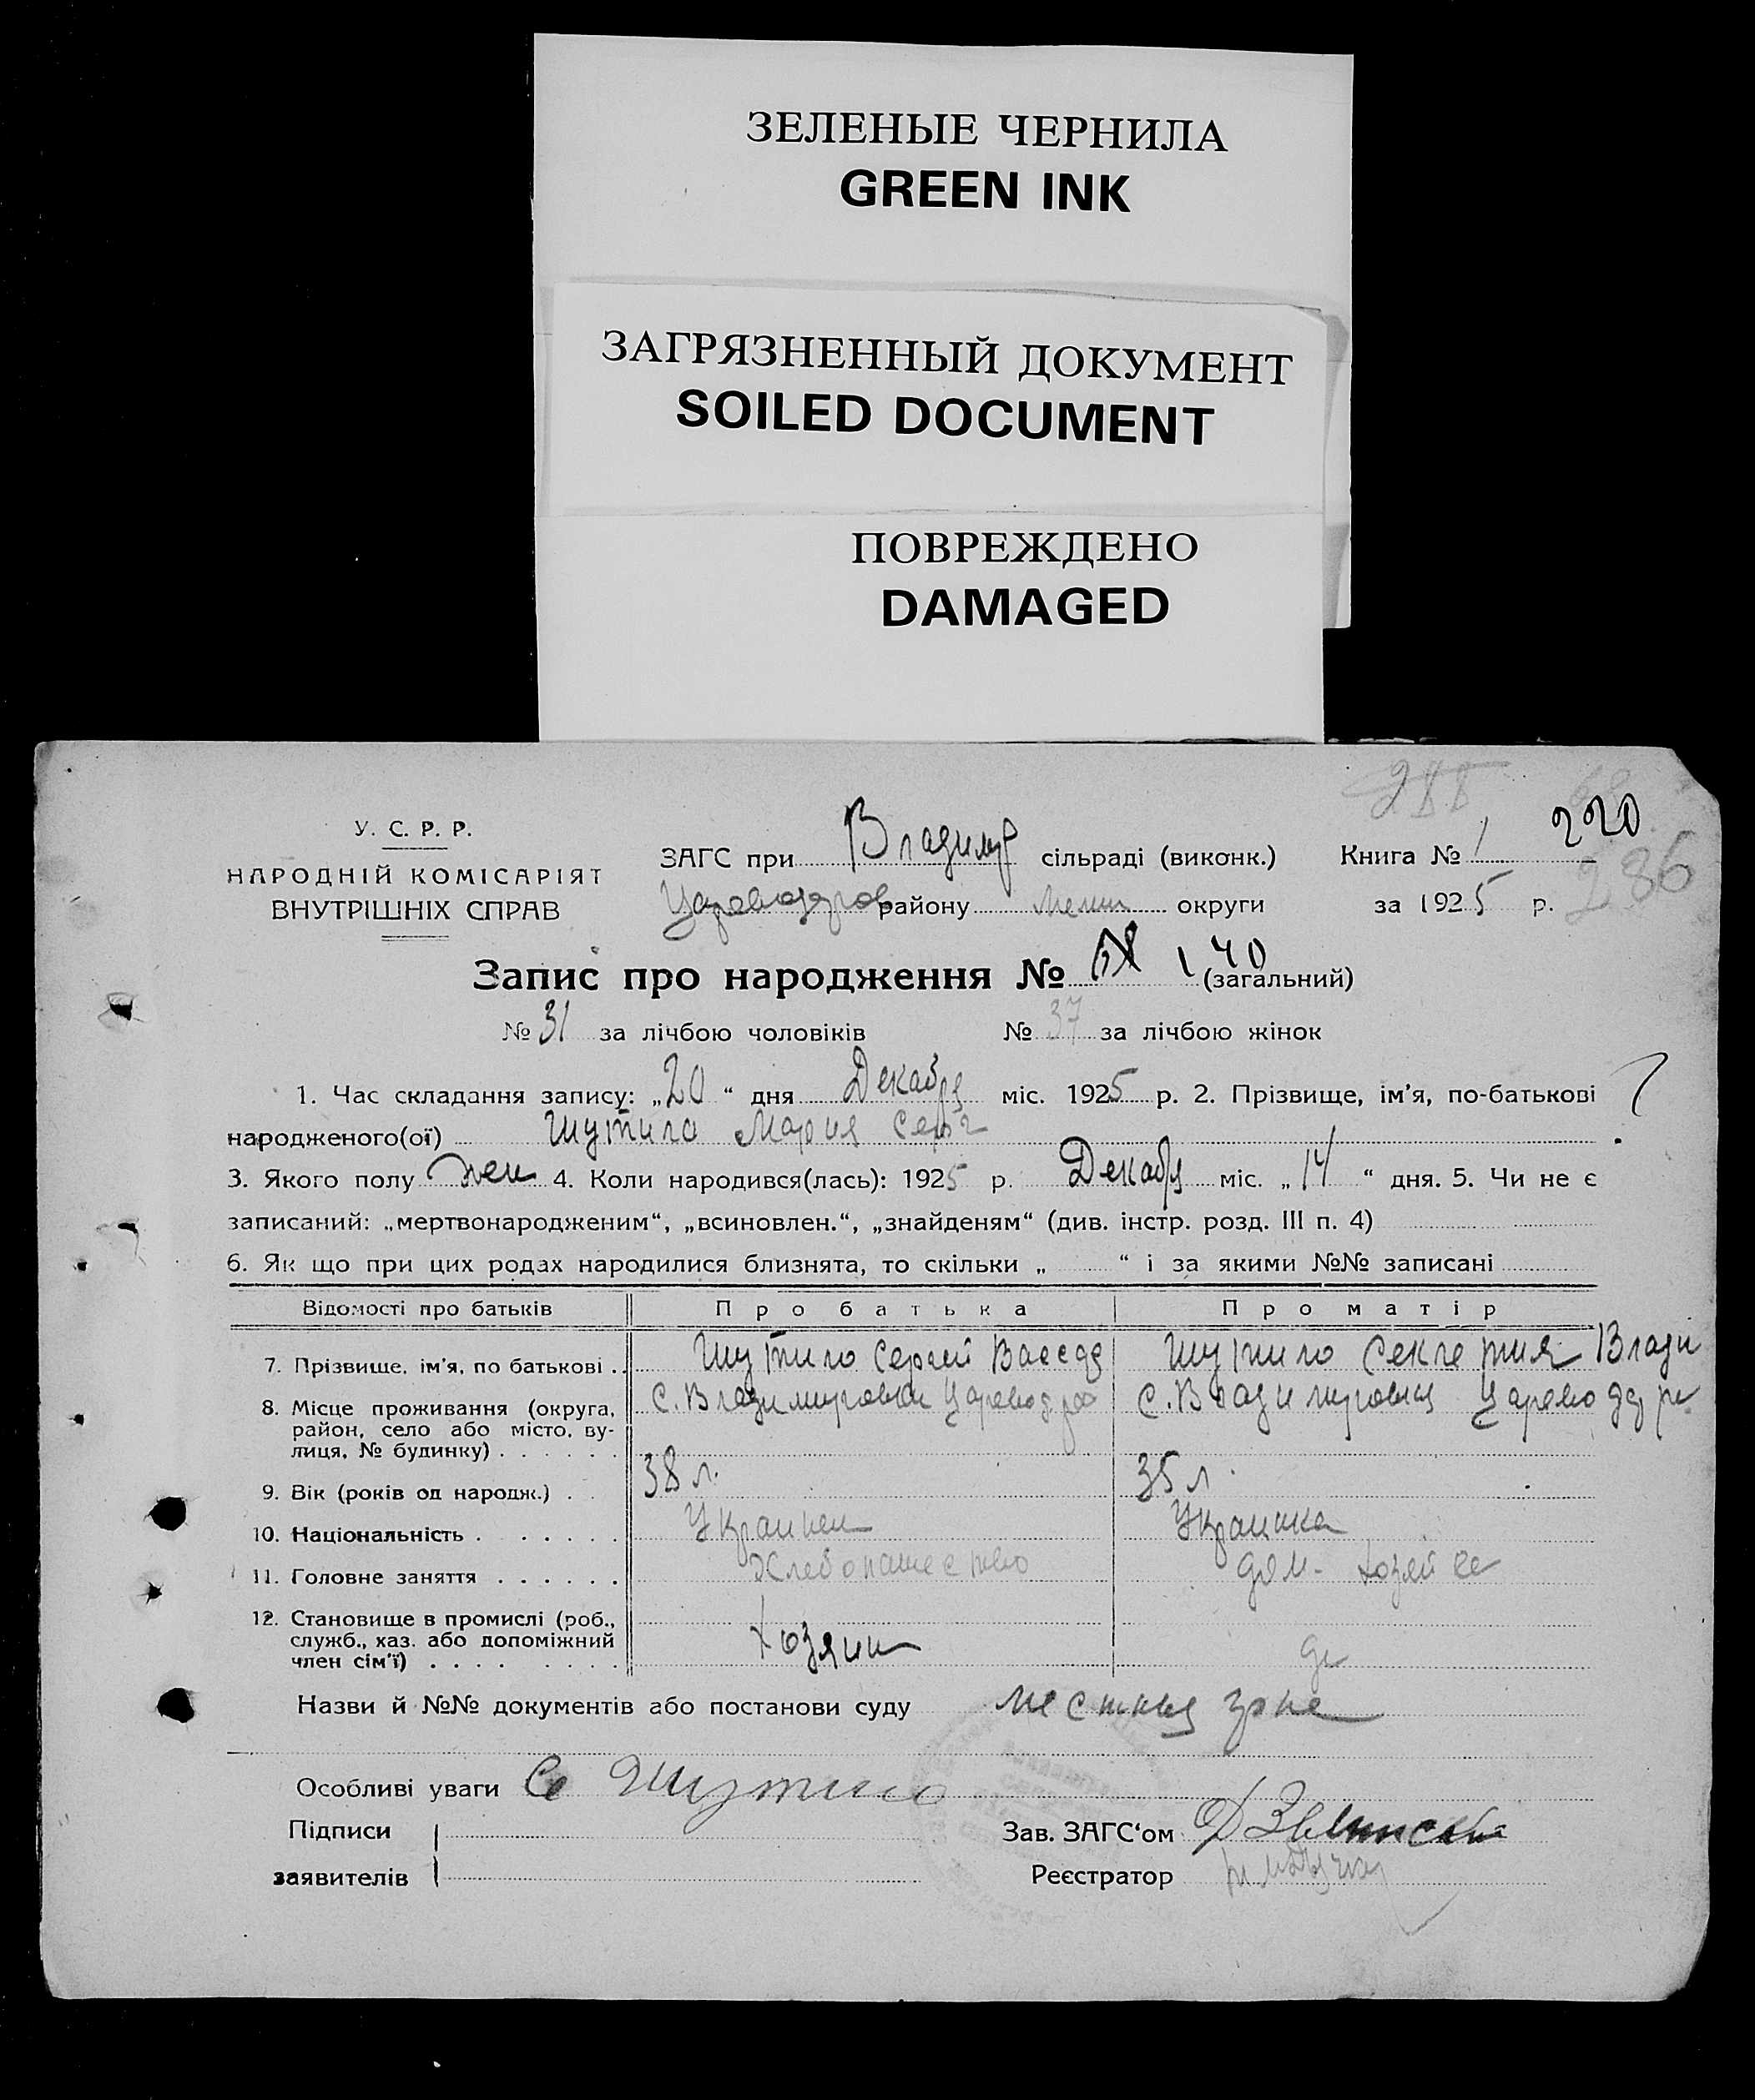 ЗЕЛЕНЫЕ ЧЕРНИЛА
GREEN INK
ЗАГРЯЗНЕННЫЙ ДОКУМЕНТ
SOILED DOCUMENT
ПОВРЕЖДЕНО
DAMAGED
288
220
286
У. С. Р. Р.
НАРОДНІЙ КОМІСАРІЯТ
ВНУТРІШНІХ СПРАВ
ЗАГС при Владимр сільраді (виконк.) Книга № 1
району Мелит округи за 1925 р.
Запис про народження № 140 (загальний)
№ 31 за лічбою чоловіків № 37 за лічбою жінок
1. Час складання запису: „20“ дня Декабря міс. 1925 р. 2. Прізвище, ім’я, по-батькові
народженого(ої) Шутило Мария
3. Якого полу жен 4. Коли народився(лась): 1925 р. Декабря міс. „14“ дня. 5. Чи не є
записаний: „мертвонародженим“, „всиновлен.“, „знайденям“ (див. інстр. розд. III п. 4)
6. Як що при цих родах народилися близнята, то скільки „ “ і за якими №№ записані
Відомості про батьків Про батька Про матір
7. Прізвище, ім’я, по батькові . . Шутило Сергей Шутило Влади
8. Місце проживання (округа, с. Владимировка с. Владимировка
район, село або місто, ву-
лиця, № будинку) . . . . . .
9. Вік (років од народж.) . . 38 л. 35 л.
10. Національність . . . . . . Украинец Украинка
11. Головне заняття . . . . . . Хлебопашество дом. хозяйка
12. Становище в промислі (роб.,
служб., хаз. або допоміжний Хозяин
член сім’ї) . . . . . . . .
Назви й №№ документів або постанови суду
Особливі уваги С Шутило
Підписи
заявителів
Зав. ЗАГС‘ом
Реєстратор